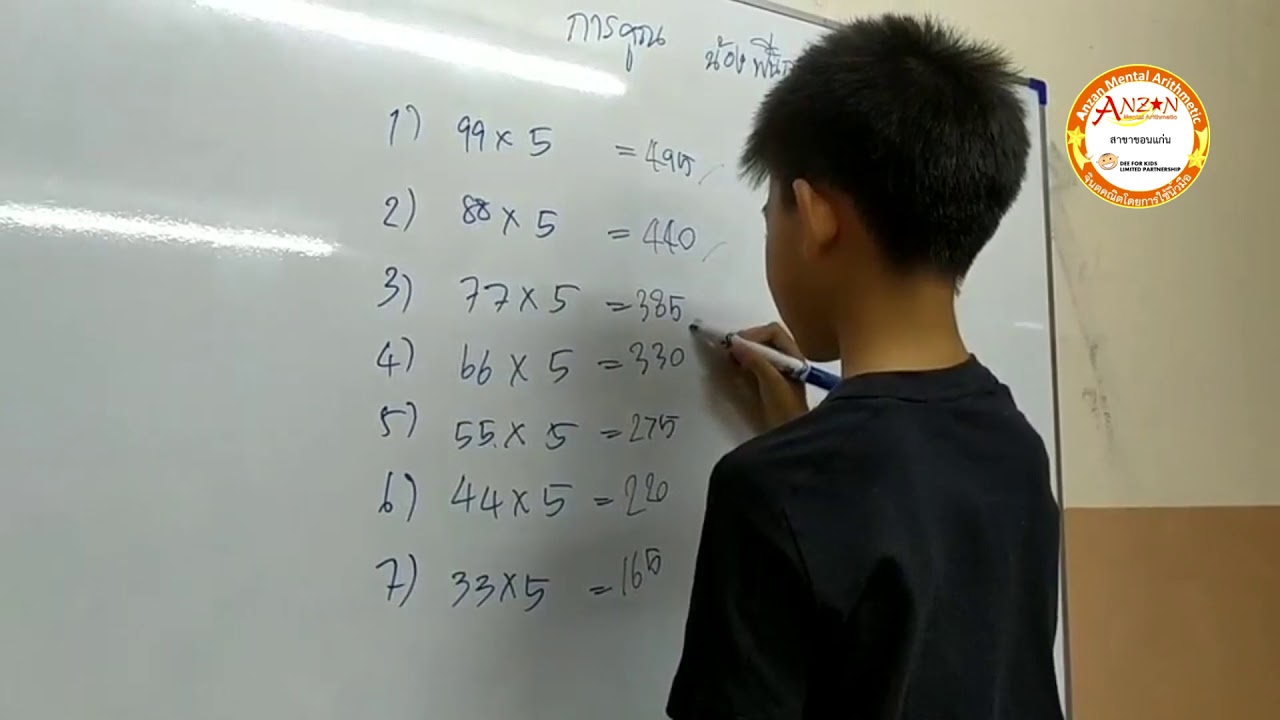 การคูณ น้อง
1) 99 × 5 = 495
2) 88 × 5 = 440
3) 77 × 5 = 385
4) 66 × 5 = 330
5) 55 × 5 = 275
6) 44 × 5 = 220
7) 33 × 5 = 165
Anzan Mental Arithmetic
ANZAN
Mental Arithmetic
สาขาขอนแก่น
DEE FOR KIDS
LIMITED PARTNERSHIP
จินตคณิตโดยการใช้นิ้วมือ